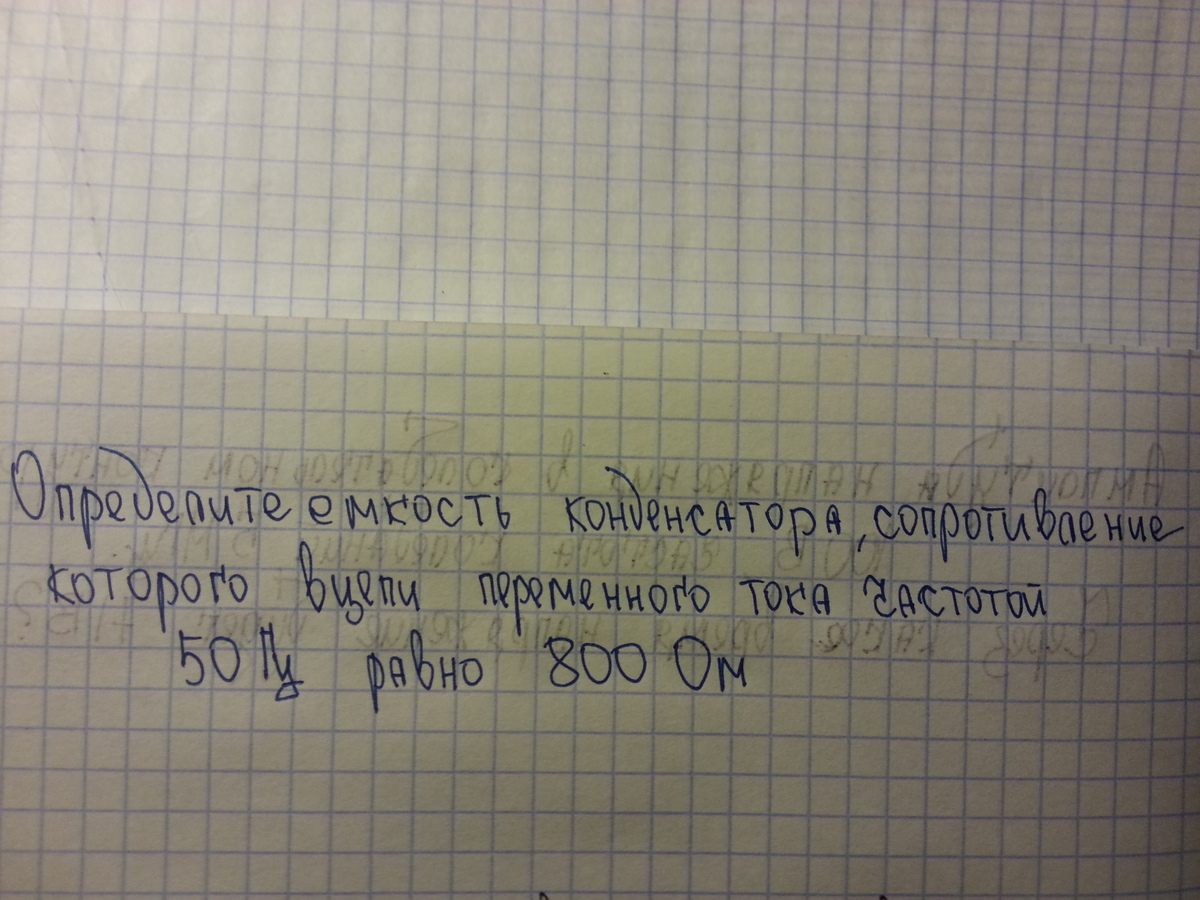 Определите емкость конденсатора, сопротивление
которого в цепи переменного тока частотой
50 Гц равно 800 Ом